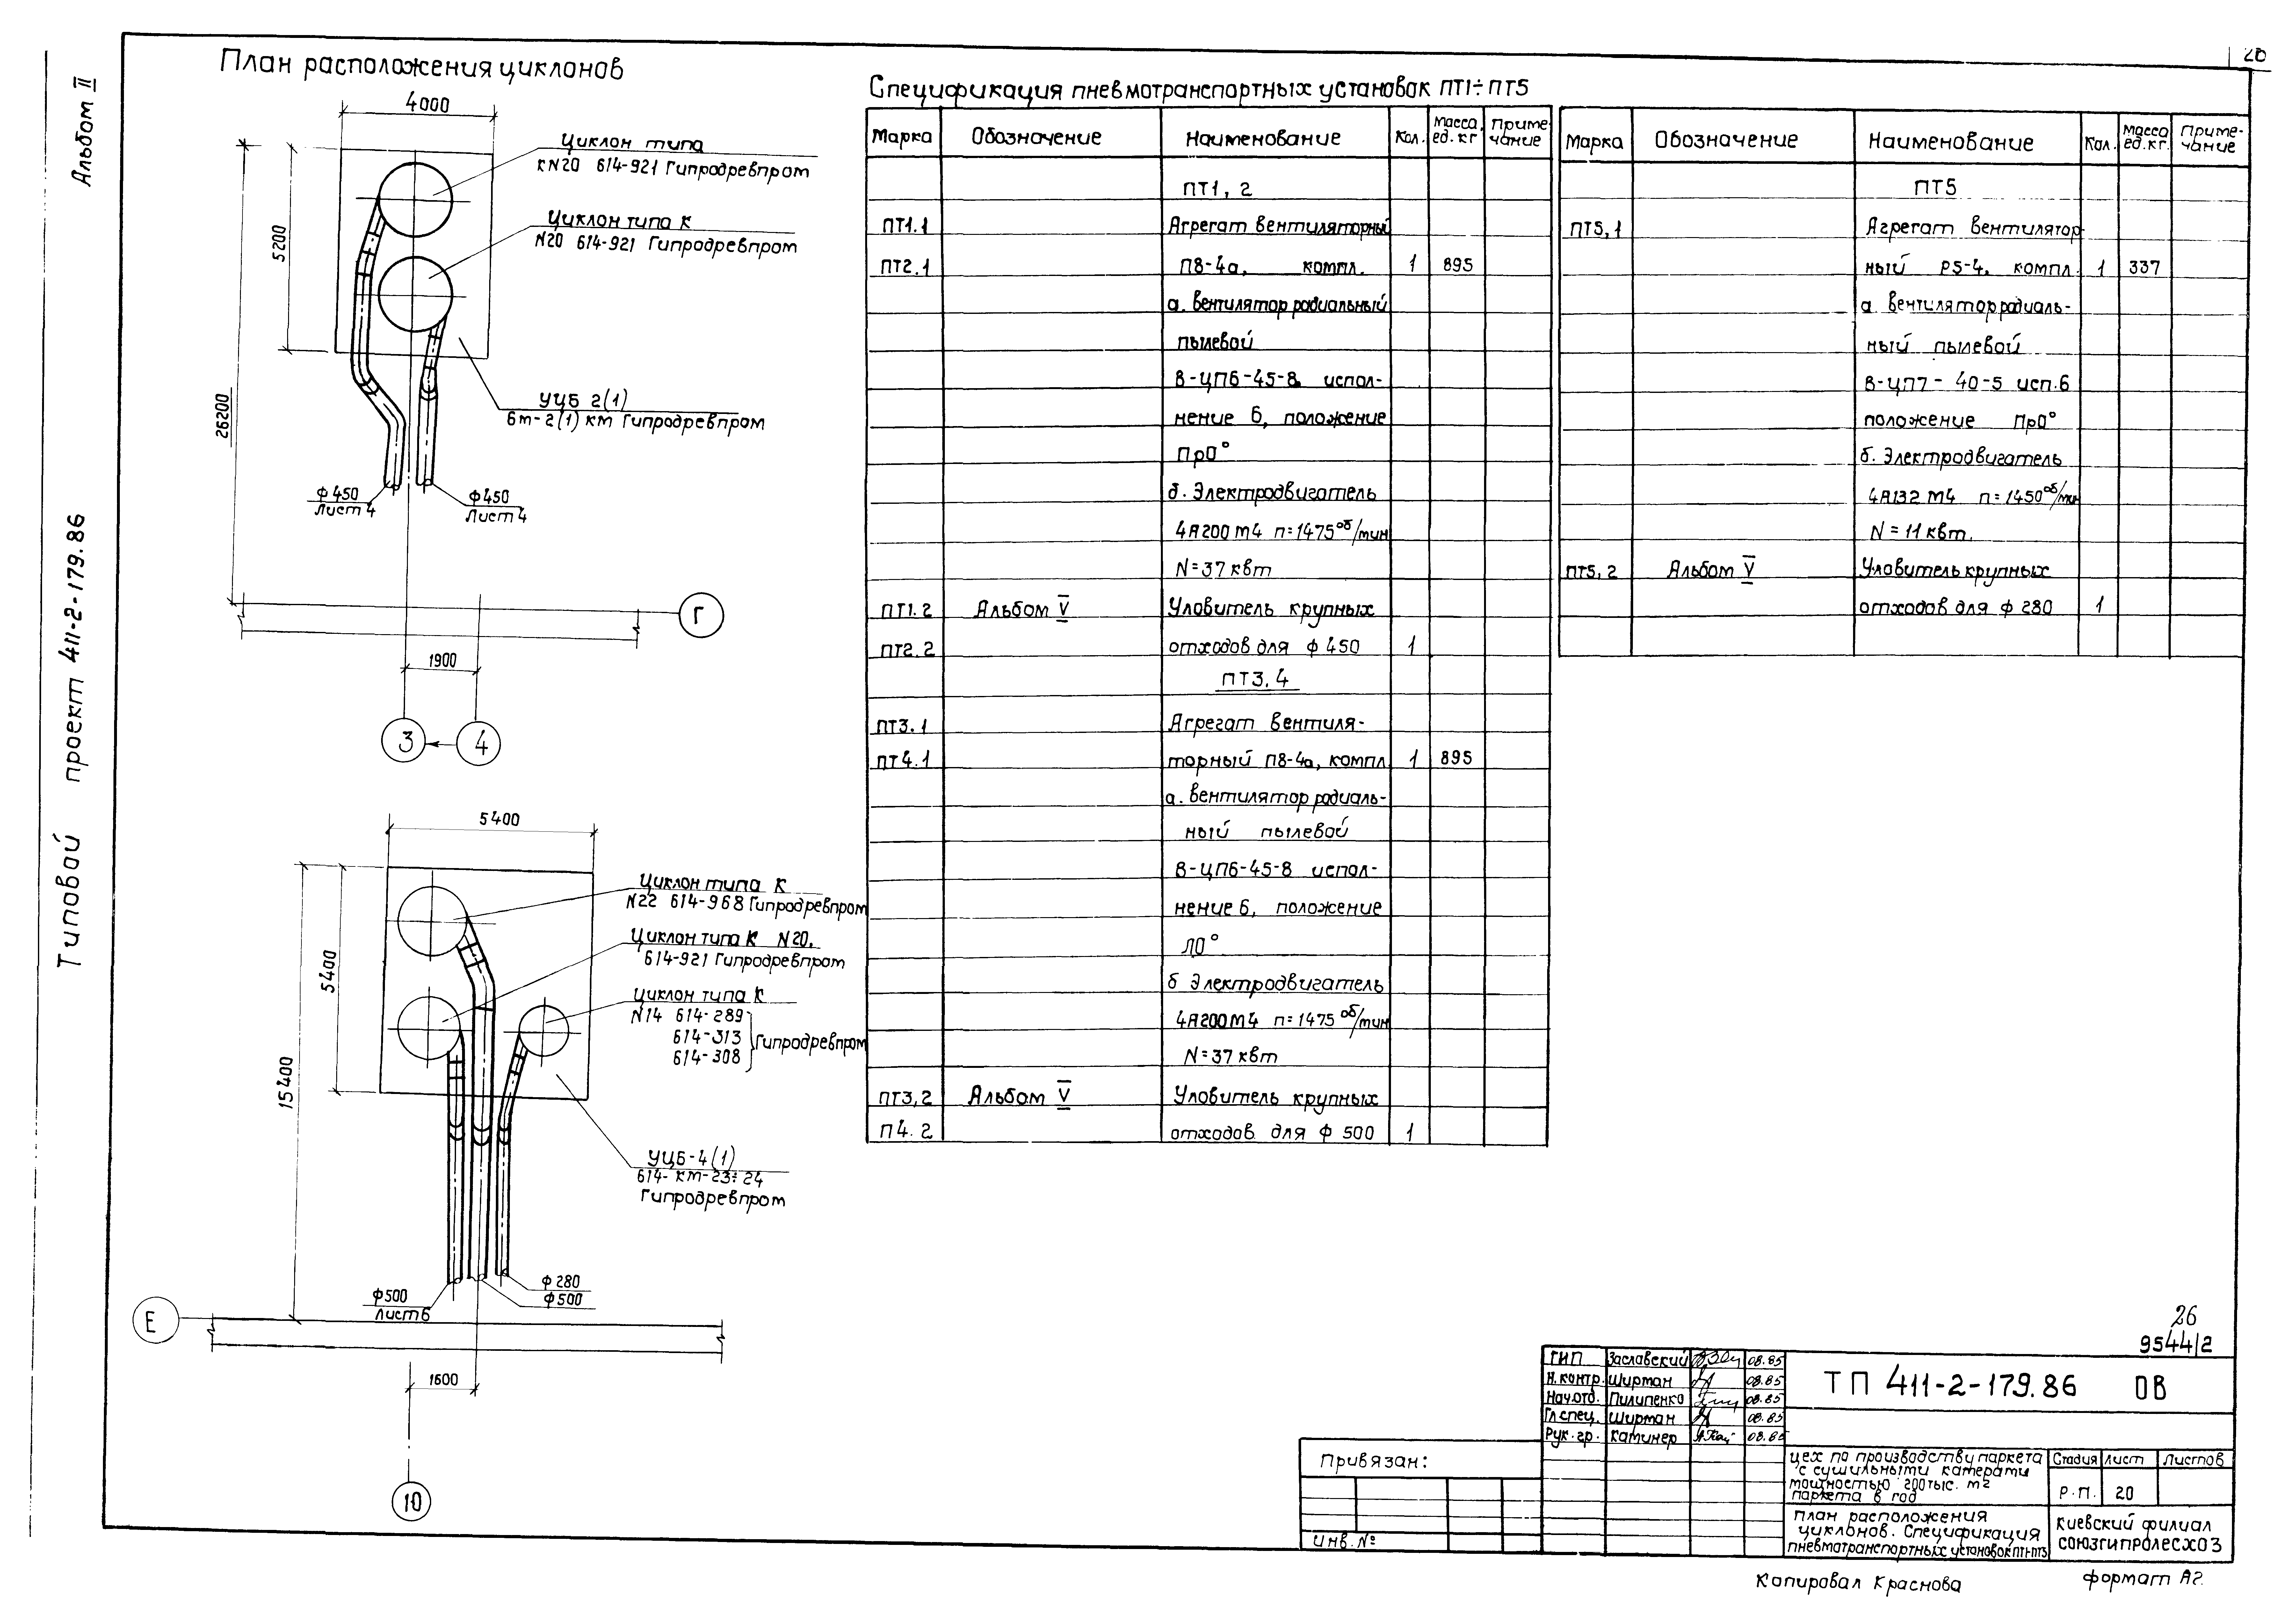 26
Альбом II
Типовой проект 411-2-179.86
План расположения циклонов
4000
5200
26200
Циклон типа
КN20 614-921 Гипродревпром
Циклон типа К
N20 614-921 Гипродревпром
УЦБ 2(1)
6т-2(1) км Гипродревпром
ф450
Лист 4
ф450
Лист 4
Г
1900
3
4
5400
5400
15400
Циклон типа К
N22 614-968 Гипродревпром
Циклон типа К N20.
614-921 Гипродревпром
Циклон типа К
N14 614-289
614-313 Гипродревпром
614-308
УЦБ-4(1)
614-км-23÷24
Гипродревпром
ф280
ф500
ф500
Лист 6
Е
1600
10
Спецификация пневмотранспортных установок ПТ1÷ПТ5
Марка Обозначение Наименование Кол. Масса, ед.кг Приме-чание
ПТ1, 2
ПТ1.1 Агрегат вентиляторный
ПТ2.1 П8-4а, компл. 1 895
а. вентилятор радиальный
пылевой
В-ЦП6-45-8 испол-
нение 6, положение
Пр0°
б. Электродвигатель
4А200М4 п=1475об/мин
N=37квт
ПТ1.2 Альбом V Уловитель крупных
ПТ2.2 отходов для ф450 1
ПТ3.4
ПТ3.1 Агрегат вентиля-
ПТ4.1 торный П8-4а, компл. 1 895
а. вентилятор радиаль-
ный пылевой
В-ЦП6-45-8 испол-
нение 6, положение
Л0°
б Электродвигатель
4А200М4 п=1475об/мин
N=37квт
ПТ3,2 Альбом V Уловитель крупных
П4.2 отходов для ф500 1
Марка Обозначение Наименование Кол. Масса ед.кг. Приме-чание
ПТ5
ПТ5,1 Агрегат вентилятор-
ный Р5-4, компл. 1 337
а. вентилятор радиаль-
ный пылевой
В-ЦП7-40-5 исп.6
положение Пр0°
б. Электродвигатель
4А132М4 п=1450об/мин
N=11квт.
ПТ5,2 Альбом V Уловитель крупных
отходов для ф280 1
26
9544/2
ГИП Заславский 08.85
Н.контр. Ширман 08.85
Нач.отд. Пилипенко 08.85
Гл спец. Ширман 08.85
Рук.гр. Каминер 08.85
ТП 411-2-179.86 ОВ
Цех по производству паркета
с сушильными камерами
мощностью 200тыс. м2
паркета в год
Стадия Лист Листов
Р.П. 20
План расположения
циклонов. Спецификация
пневмотранспортных установок ПТ1÷ПТ5
Киевский филиал
СОЮЗГИПРОЛЕСХОЗ
Привязан:
Инв.№
Копировал Краснова
формат А2